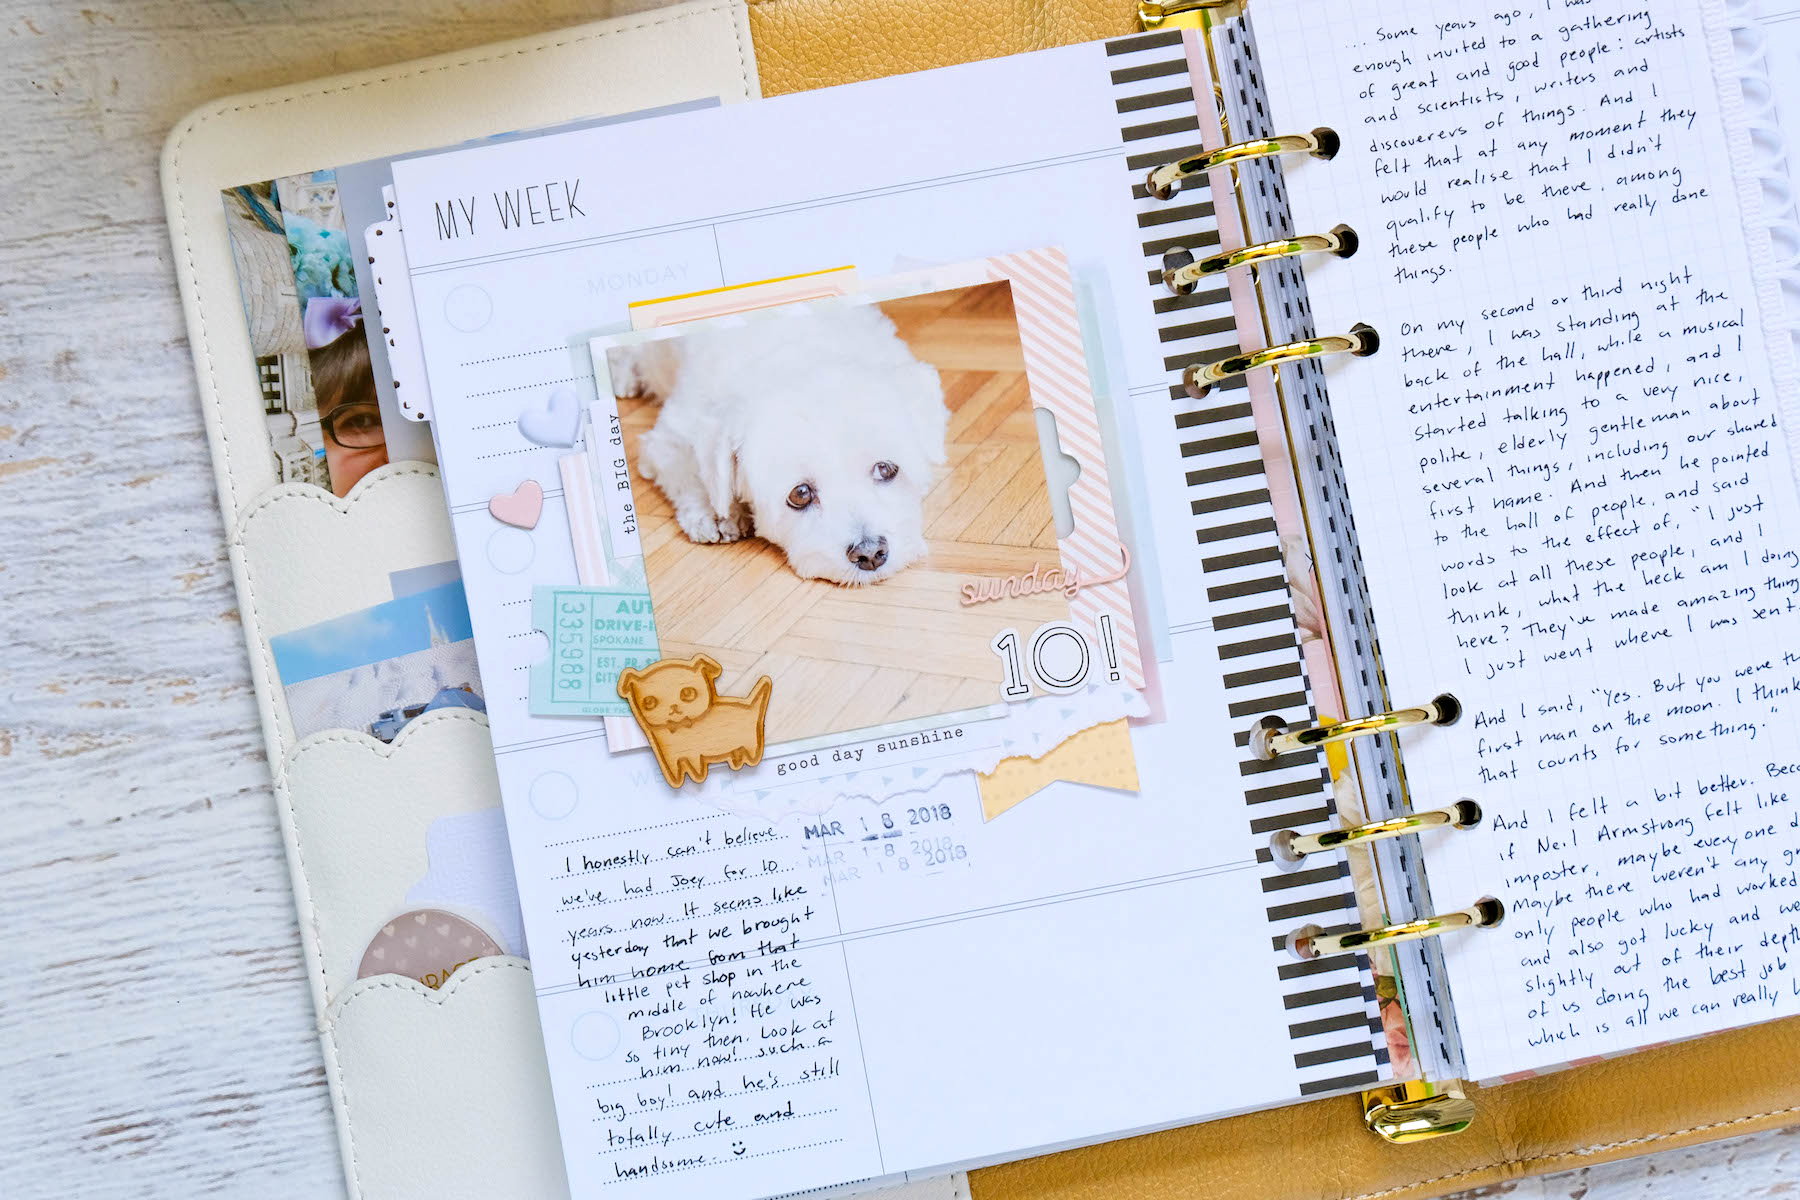 MY WEEK
MONDAY
the BIG day
AUT
DRIVE-I
SPOKANE
335988
EST. PR.
CITY
GLOBE TICK
sunday
10!
good day sunshine
WE
MAR 18 2018
MAR 18 2018
MAR 18 2018
I honestly can't believe
we've had Joey for 10
years now. It seems like
yesterday that we brought
him home from that
little pet shop in the
middle of nowhere
Brooklyn! He was
so tiny then. Look at
him now! such a
big boy! and he's still
totally cute and
handsome.
... Some years ago, I was
enough invited to a gathering
of great and good people: artists
and scientists, writers and
discoverers of things. And I
felt that at any moment they
would realise that I didn't
qualify to be there, among
these people who had really done
things.
On my second or third night
there, I was standing at the
back of the hall, while a musical
entertainment happened, and I
started talking to a very nice,
polite, elderly gentleman about
several things, including our shared
first name. And then he pointed
to the hall of people, and said
words to the effect of, "I just
look at all these people, and I
think, what the heck am I doing
here? They've made amazing things
I just went where I was sent.
And I said, "Yes. But you were th
first man on the moon. I think
that counts for something."
And I felt a bit better. Beca
if Neil Armstrong felt like
imposter, maybe every one d
Maybe there weren't any gr
only people who had worked
and also got lucky and we
slightly out of their depth
of us doing the best job
which is all we can really h